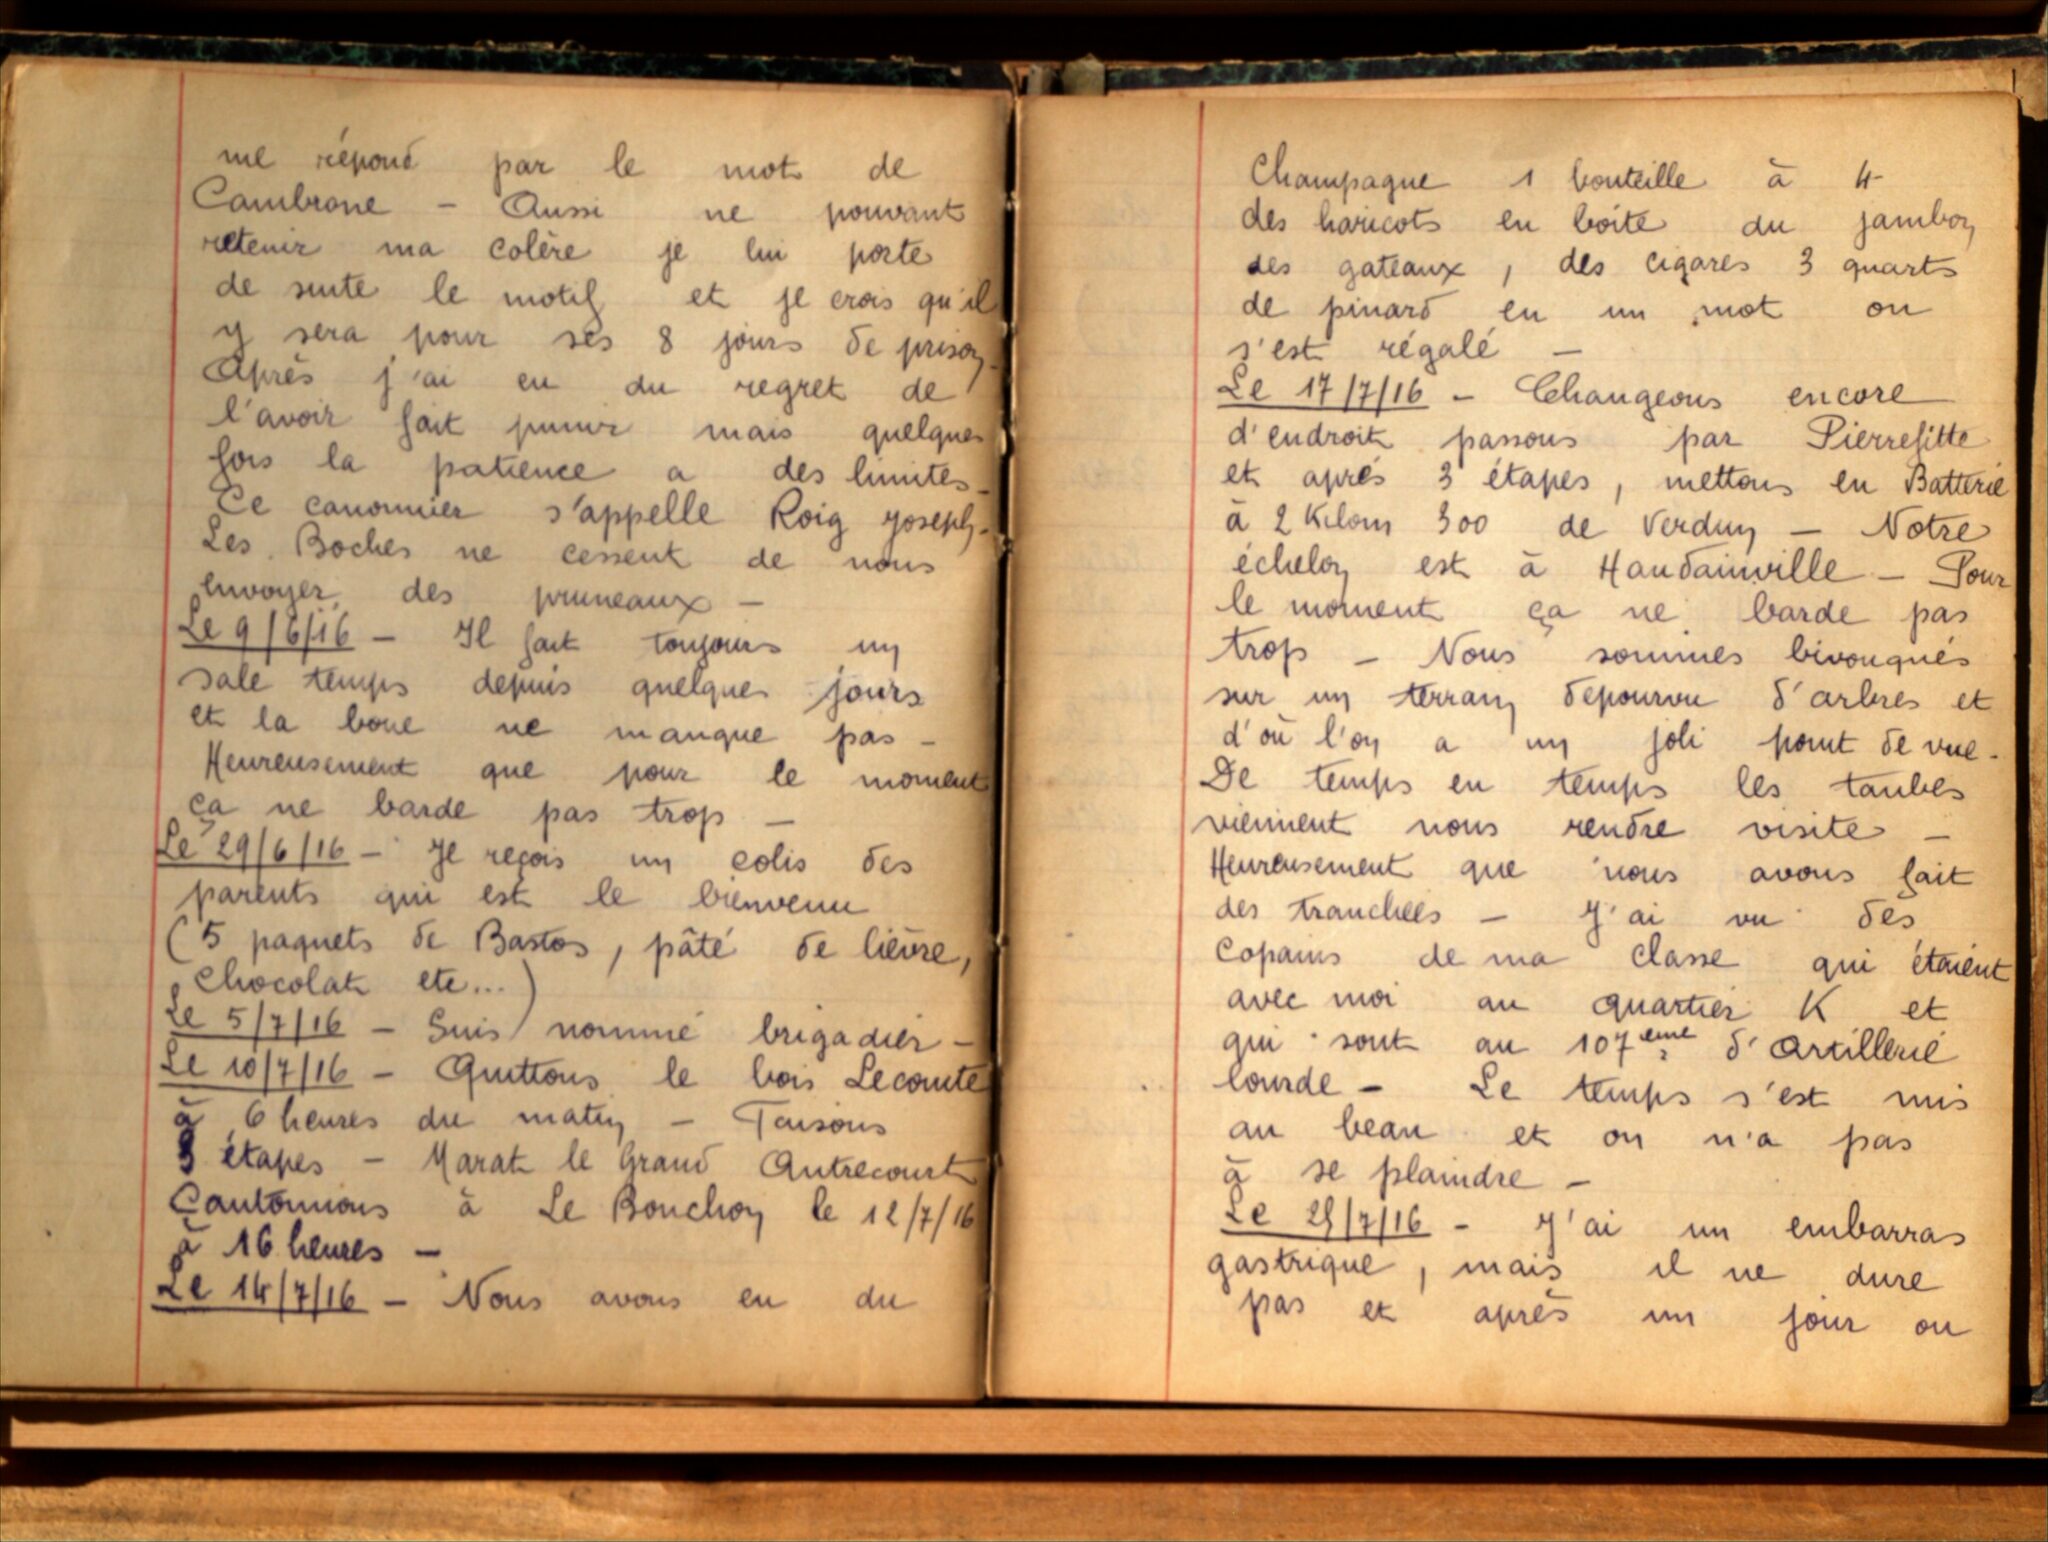 me répond par le mot de
Cambrone - Aussi ne pouvant
retenir ma colère je lui porte
de suite le motif et je crois qu'il
y sera pour ses 8 jours de prison -
Après j'ai eu du regret de
l'avoir fait punir mais quelques
fois la patience a des limites -
Ce canonnier s'appelle Roig Joseph -
Les Boches ne cessent de nous
envoyer des pruneaux -
Le 9/6/16 - Il fait toujours un
sale temps depuis quelques jours
et la boue ne manque pas -
Heureusement que pour le moment
ça ne barde pas trop -
Le 29/6/16 - Je reçois un colis des
parents qui est le bienvenu
(5 paquets de Bastos, pâté de lièvre,
chocolat etc...)
Le 5/7/16 - Suis nommé brigadier -
Le 10/7/16 - Quittons le bois Lecomte
à 6 heures du matin - Faisons
3 étapes - Marat le Grand Autrecourt
Cantonnons à Le Bouchon le 12/7/16
à 16 heures -
Le 14/7/16 - Nous avons eu du
Champagne 1 bouteille à 4
des haricots en boite du jambon
des gateaux, des cigares 3 quarts
de pinard en un mot on
s'est régalé -
Le 17/7/16 - Changeons encore
d'endroit passons par Pierrefitte
et après 3 étapes, mettons en Batterie
à 2 Kilom 300 de Verdun - Notre
échelon est à Haudainville - Pour
le moment ça ne barde pas
trop - Nous sommes bivouqués
sur un terrain depourvu d'arbres et
d'où l'on a un joli point de vue -
De temps en temps les taubes
viennent nous rendre visite -
Heureusement que nous avons fait
des tranchées - J'ai vu des
copains de ma classe qui étaient
avec moi au quartier K et
qui sont au 107eme d'Artillerie
lourde - Le temps s'est mis
au beau et on n'a pas
à se plaindre -
Le 25/7/16 - J'ai un embarras
gastrique, mais il ne dure
pas et après un jour ou